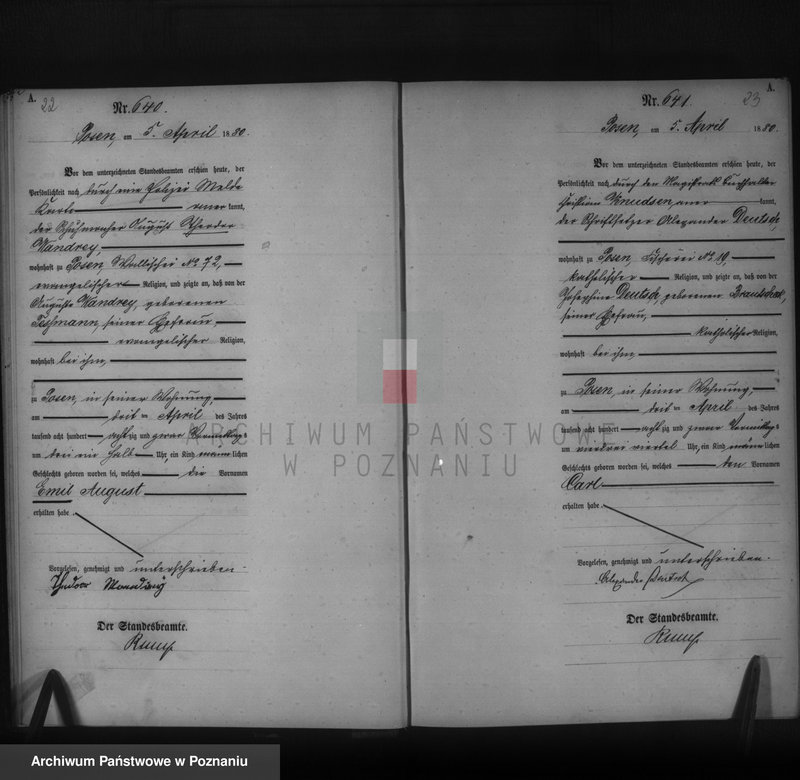 A.
22
Nr. 640.
Posen, am 5. April 1880.
Vor dem unterzeichneten Standesbeamten erschien heute, der
Persönlichkeit nach durch eine Polizei Melde
Karte kannt,
der Schuhmacher August Theodor
Wandrey,
wohnhaft zu Posen, Wallischei No 72,
evangelischer Religion, und zeigte an, daß von der
Auguste Wandrey, geborenen
Tissmann, seiner Ehefrau
evangelischer Religion,
wohnhaft bei ihm,
zu Posen, in seiner Wohnung,
am drit ten April des Jahres
tausend acht hundert acht zig und zwar Vormittags
um drei ein halb Uhr, ein Kind männ lichen
Geschlechts geboren worden sei, welches die Vornamen
Emil August
erhalten habe.
Vorgelesen, genehmigt und unterschrieben.
Theodor
Der Standesbeamte.
A.
23
Nr. 641.
Posen, am 5. April 1880.
Vor dem unterzeichneten Standesbeamten erschien heute, der
Persönlichkeit nach durch den Magistrats Buchhalter
Christian Knudsen, aner kannt,
der Schriftsetzer Alexander Deutsch,
wohnhaft zu Posen Fischerei No 19,
katholischer Religion, und zeigte an, daß von der
Josephine Deutsch, geborenen
seiner Ehefrau,
katholischer Religion,
wohnhaft bei ihm,
zu Posen, in seiner Wohnung,
am drit ten April des Jahres
tausend acht hundert acht zig und zwar Vormittags
um drei viertel Uhr, ein Kind männ lichen
Geschlechts geboren worden sei, welches den Vornamen
Carl
erhalten habe.
Vorgelesen, genehmigt und unterschrieben.
Alexander Deutsch
Der Standesbeamte.
ARCHIWUM PAŃSTWOWE
W POZNANIU
Archiwum Państwowe w Poznaniu